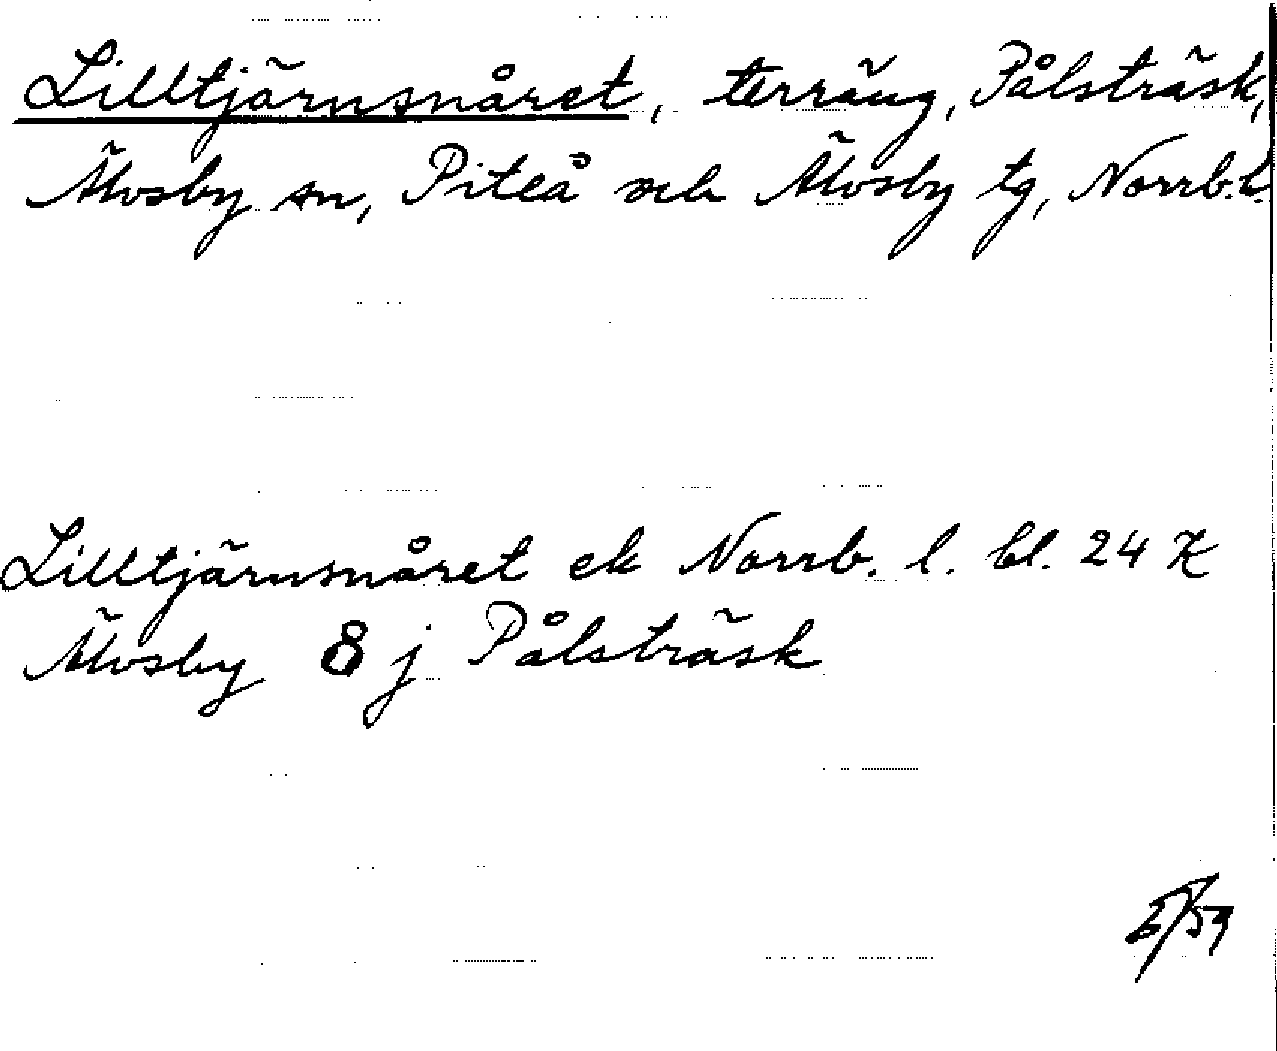 Lilltjärnsnåret, terräng, Pålsträsk,
Älvsby sn, Piteå och Älvsby tg, Norrb.l.
Lilltjärnsnåret ek Norrb. l. bl. 24 K
Älvsby 8 j Pålsträsk